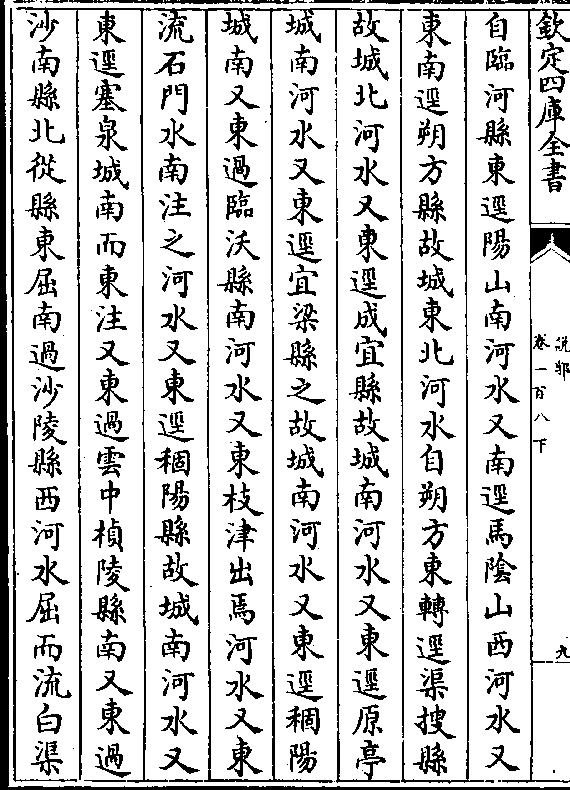 欽定四庫全書
說郛
卷一百八下
九
自臨河縣東逕陽山南河水又南逕馬陰山西河水又
東南逕朔方縣故城東北河水自朔方東轉逕渠搜縣
故城北河水又東逕成宜縣故城南河水又東逕原亭
城南河水又東逕宜梁縣之故城南河水又東逕稒陽
城南又東過臨沃縣南河水又東枝津出焉河水又東
流石門水南注之河水又東逕稒陽縣故城南河水又
東逕塞泉城南而東注又東過雲中楨陵縣南又東過
沙南縣北從縣東屈南過沙陵縣西河水屈而流白渠